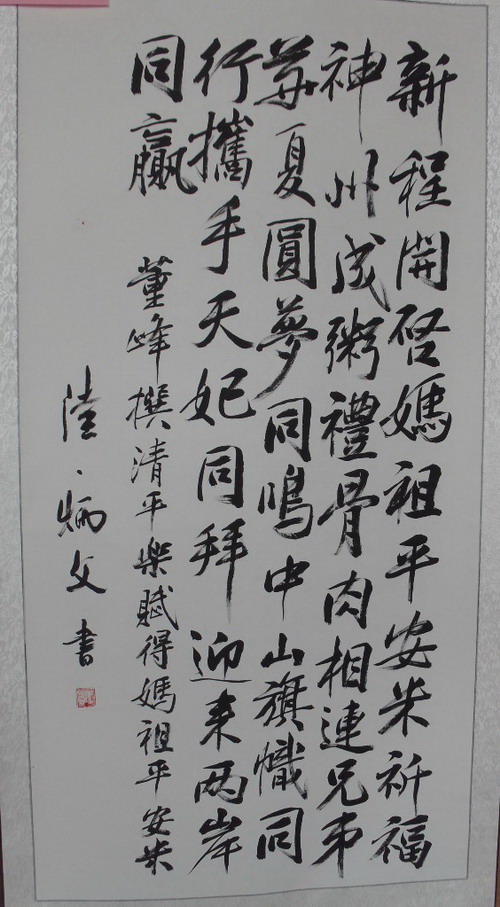 新程開啓媽祖平安米祈福
神州成粥禮骨肉相連兄弟
華夏圓夢同鳴中山旗幟同
行攜手天妃同拜迎来两岸
同贏
董峰撰清平樂賦得媽祖平安米
陸、炳文書